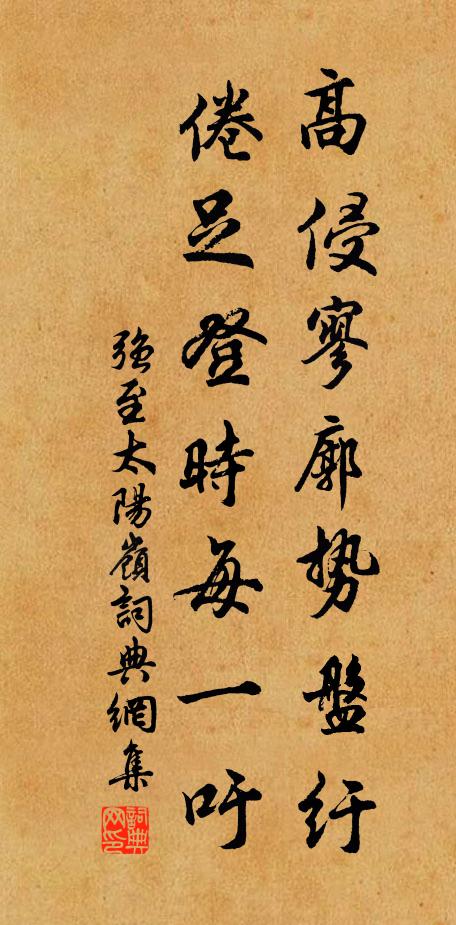 高侵寥廓势盤紆
倦足登時每一吁
強至太陽嶺詞典網集
詞典網印